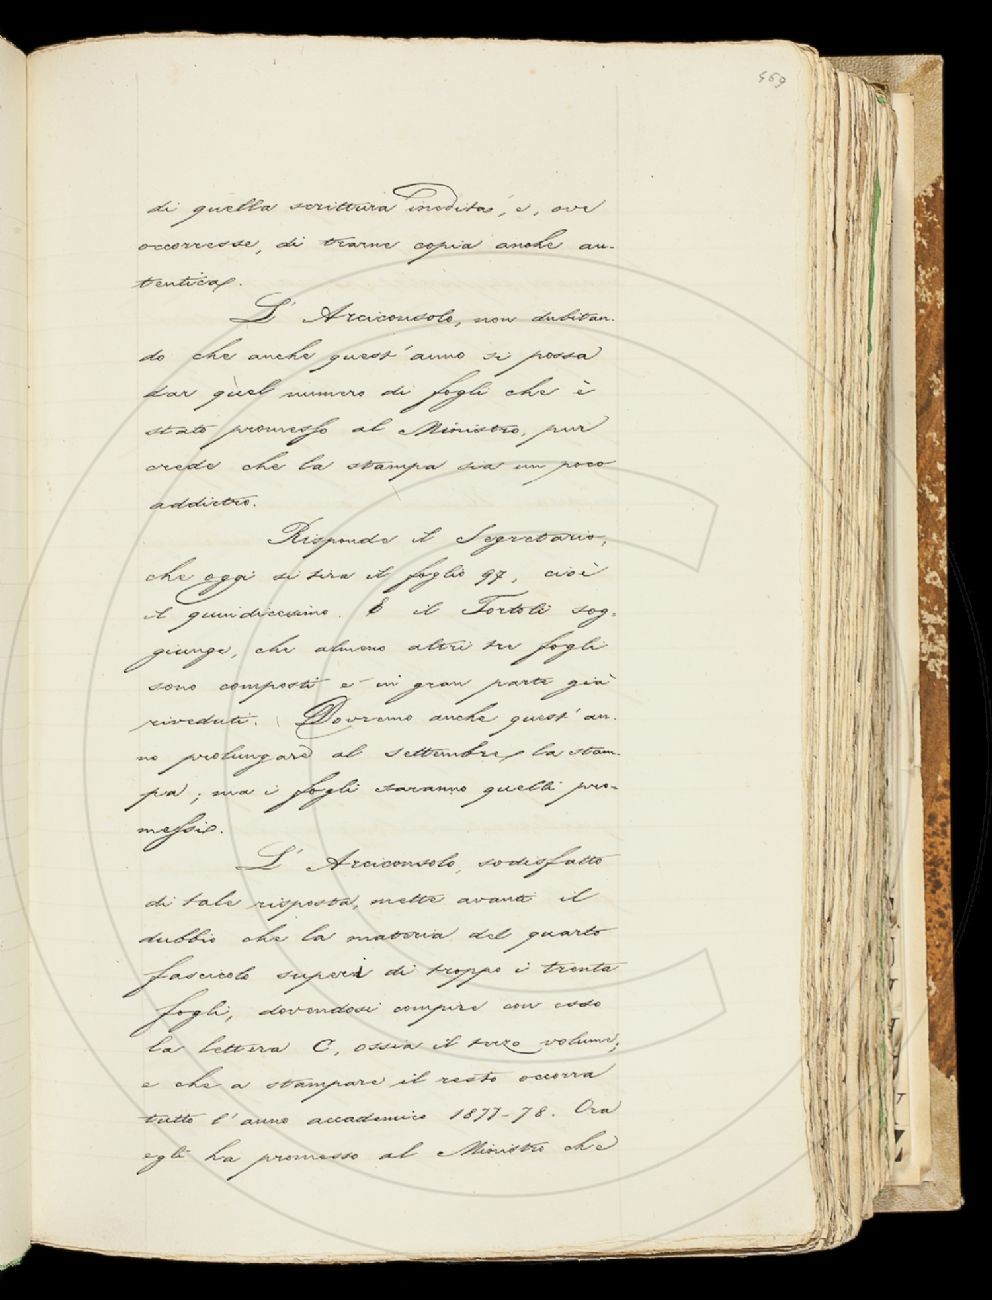 469
di quella scrittura inedita, e, ove
occorresse, di trarne copia anche au-
tentica.
L'Arciconsolo, non dubitan-
do che anche quest'anno si possa
dar quel numero di fogli che è
stato promesso al Ministro, pur
crede che la stampa sia un poco
addietro.
Risponde il Segretario,
che oggi si tira il foglio 97, cioè
il quindicesimo. E il Tortoli sog-
giunge, che almeno altri tre fogli
sono composti e in gran parte già
riveduti. Dovremo anche quest'an-
no prolungare al settembre la stam-
pa; ma i fogli saranno quelli pro-
messi.
L'Arciconsolo, sodisfatto
di tale risposta, mette avanti il
dubbio che la materia del quarto
fascicolo superi di troppo i trenta
fogli, dovendosi compire con esso
la lettera C, ossia il terzo volume;
e che a stampare il resto occorra
tutto l'anno accademico 1877-78. Ora
egli ha promesso al Ministro che